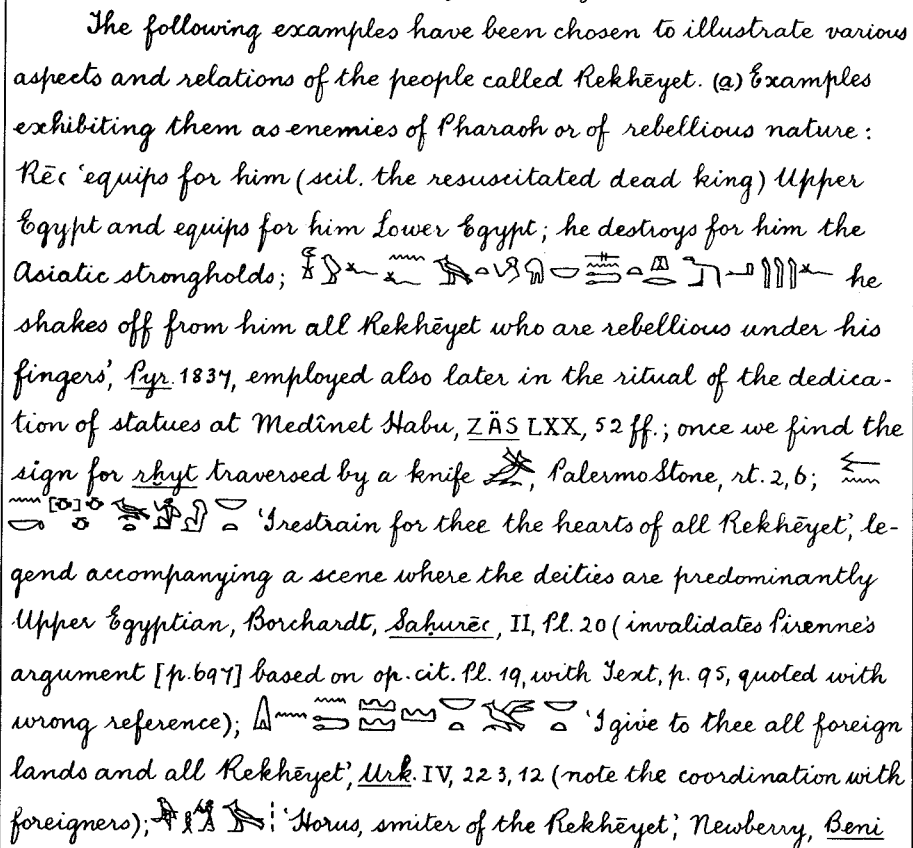 The following examples have been chosen to illustrate various
aspects and relations of the people called Rekhēyet. (a) Examples
exhibiting them as enemies of Pharaoh or of rebellious nature :
Rēꜥ 'equips for him (scil. the resuscitated dead king) Upper
Egypt and equips for him Lower Egypt; he destroys for him the
Asiatic strongholds; he
shakes off from him all Rekhēyet who are rebellious under his
fingers', Pyr. 1837, employed also later in the ritual of the dedica-
tion of statues at Medînet Habu, ZÄS LXX, 52 ff.; once we find the
sign for rḫyt traversed by a knife , Palermo Stone, rt. 2, 6;
'I restrain for thee the hearts of all Rekhēyet', le-
gend accompanying a scene where the deities are predominantly
Upper Egyptian, Borchardt, Saḥurēꜥ, II, Pl. 20 (invalidates Pirenne's
argument [p. 697] based on op. cit. Pl. 19, with Text, p. 95, quoted with
wrong reference); 'I give to thee all foreign
lands and all Rekhēyet', Urk. IV, 223, 12 (note the coordination with
foreigners); 'Horus, smiter of the Rekhēyet', Newberry, Beni